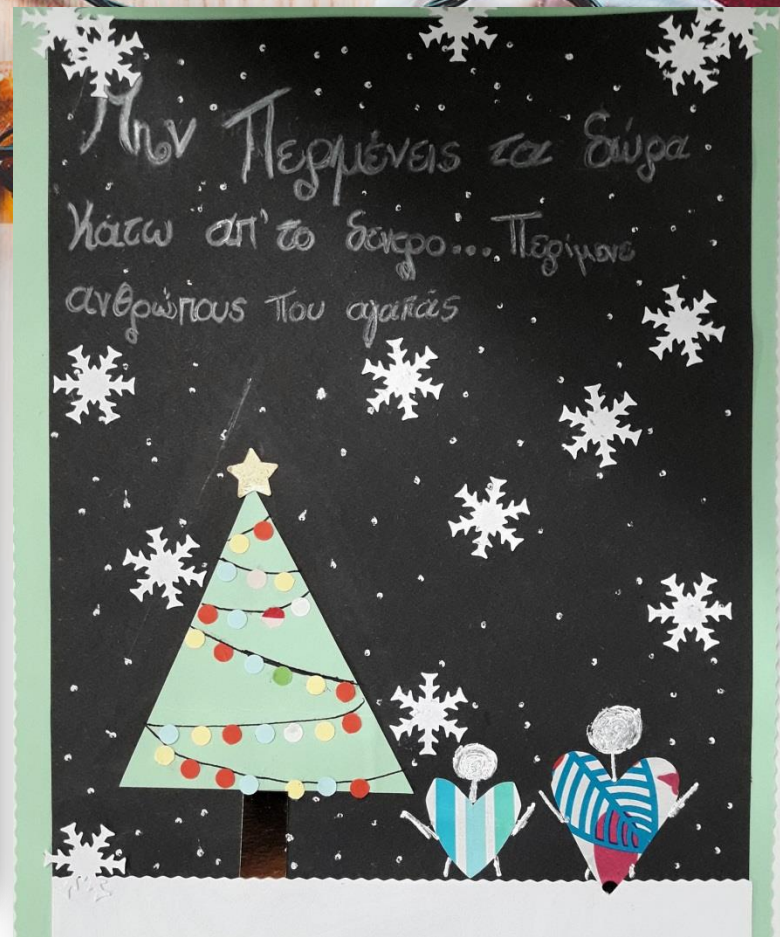 Μην Περιμένεις τα δώρα
κάτω απ' το δεντρο... Περίμενε
ανθρώπους που αγαπάς